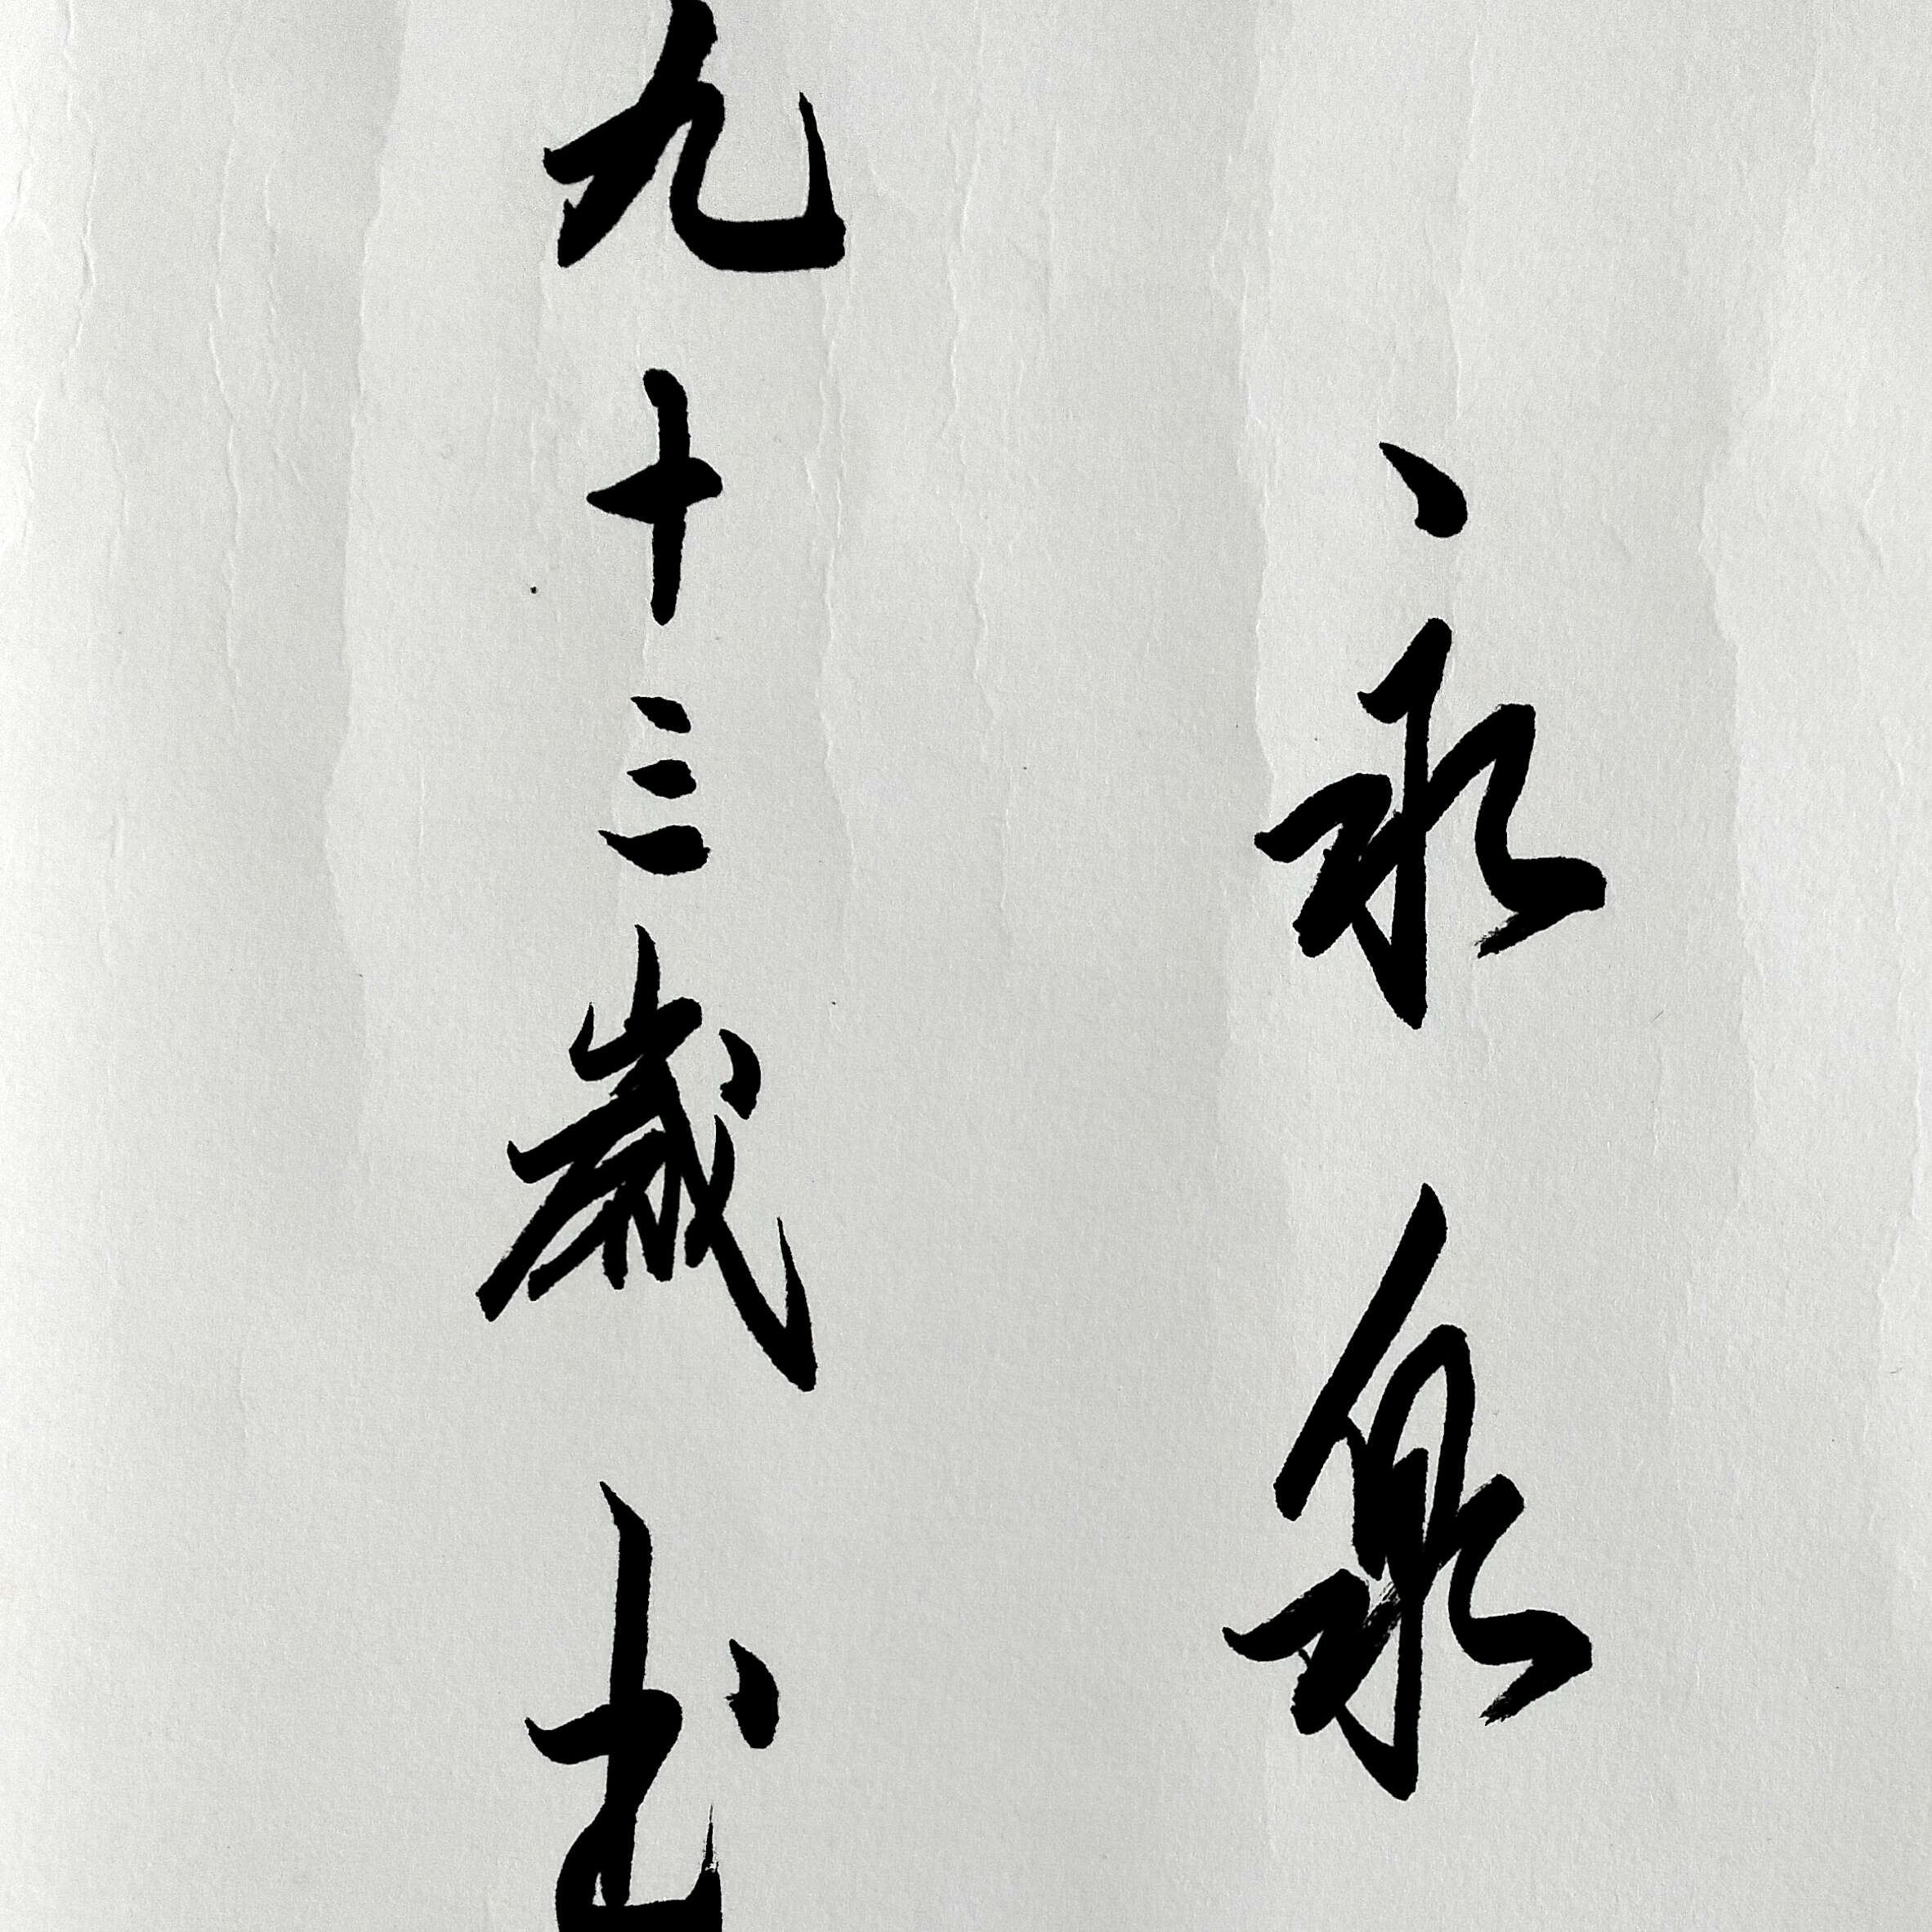 永泉
九十三歲書